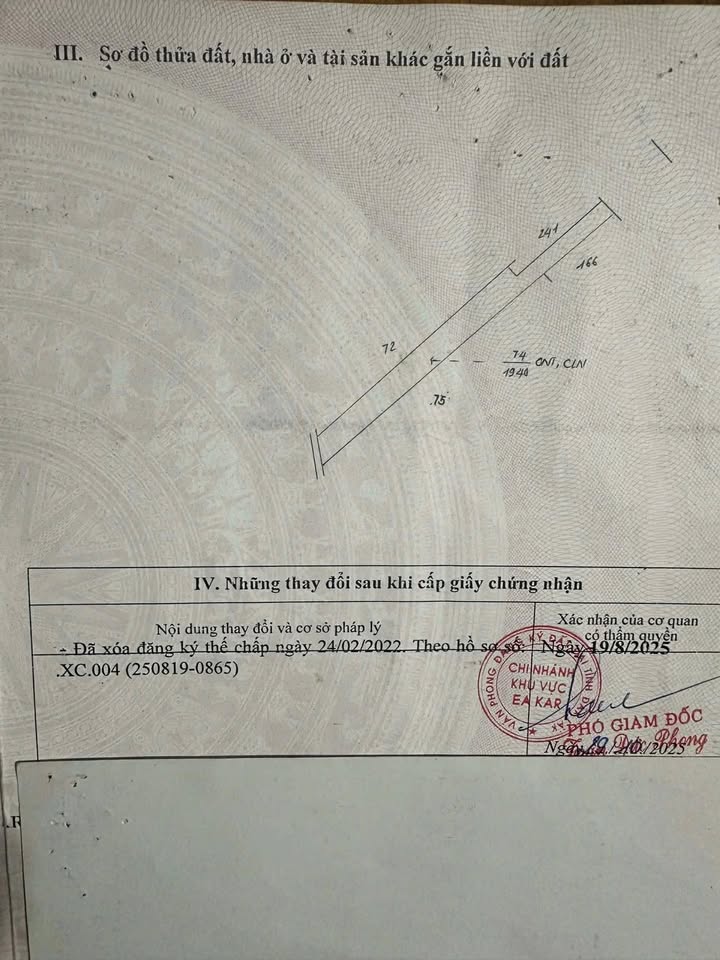 III. Sơ đồ thửa đất, nhà ở và tài sản khác gắn liền với đất
241
166
72
74
1940 ONT, CLN
75
IV. Những thay đổi sau khi cấp giấy chứng nhận
Nội dung thay đổi và cơ sở pháp lý
Xác nhận của cơ quan
có thẩm quyền
- Đã xóa đăng ký thế chấp ngày 24/02/2022. Theo hồ sơ số:
.XC.004 (250819-0865)
Ngày 19/8/2025
VĂN PHÒNG ĐĂNG KÝ ĐẤT ĐAI TỈNH ĐẮK LẮK
CHI NHÁNH
KHU VỰC
EA KAR
PHÓ GIÁM ĐỐC
Đức Phong
Ngày 29/10/2025